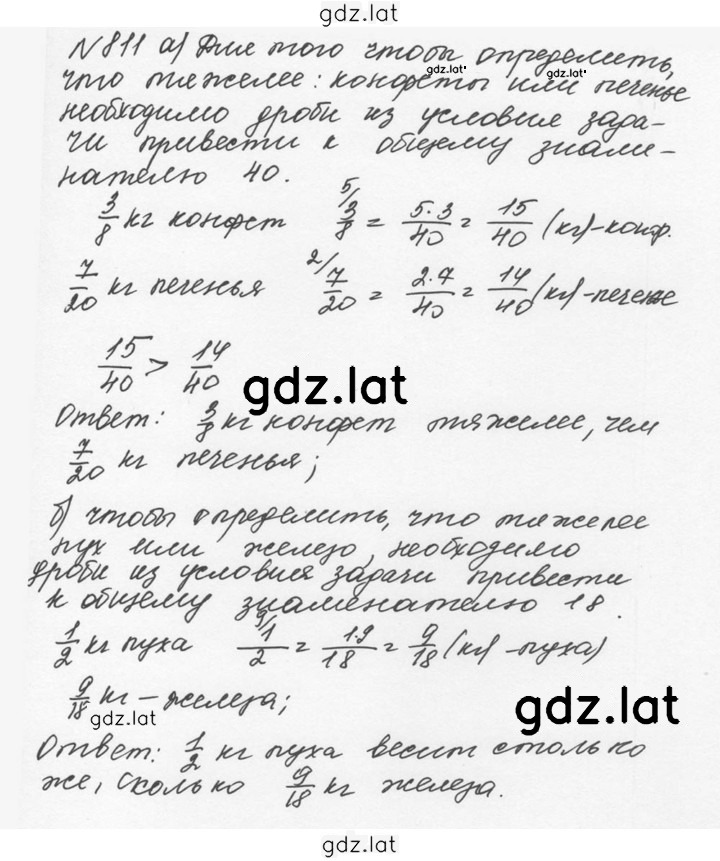 gdz.lat
№811 а) Для того чтобы определить,
gdz.lat gdz.lat
что тяжелее: конфеты или печенье
необходимо дроби из условия зада-
чи привести к общему знаме-
нателю 40.
3/8 кг конфет 5/ 3/8 = 5·3/40 = 15/40 (кг)-конф.
7/20 кг печенья 2/ 7/20 = 2·7/40 = 14/40 (кг)-печенье
15/40 > 14/40
gdz.lat
Ответ: 3/8 кг конфет тяжелее, чем
7/20 кг печенья;
б) чтобы определить, что тяжелее
пух или железо, необходимо
дроби из условия задачи привести
к общему знаменателю 18.
1/2 кг пуха 9/ 1/2 = 1·9/18 = 9/18 (кг) -пуха)
9/18 кг - железа;
gdz.lat gdz.lat
Ответ: 1/2 кг пуха весит столько
же, сколько 9/18 кг железа.
gdz.lat